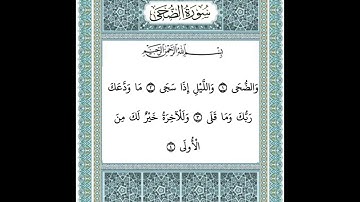 سُورَةُ الضُّحَىٰ
بِسْمِ اللَّهِ الرَّحْمَٰنِ الرَّحِيمِ
وَالضُّحَى ۝١ وَاللَّيْلِ إِذَا سَجَى ۝٢ مَا وَدَّعَكَ
رَبُّكَ وَمَا قَلَى ۝٣ وَلَلْآخِرَةُ خَيْرٌ لَكَ مِنَ
الْأُولَى ۝٤